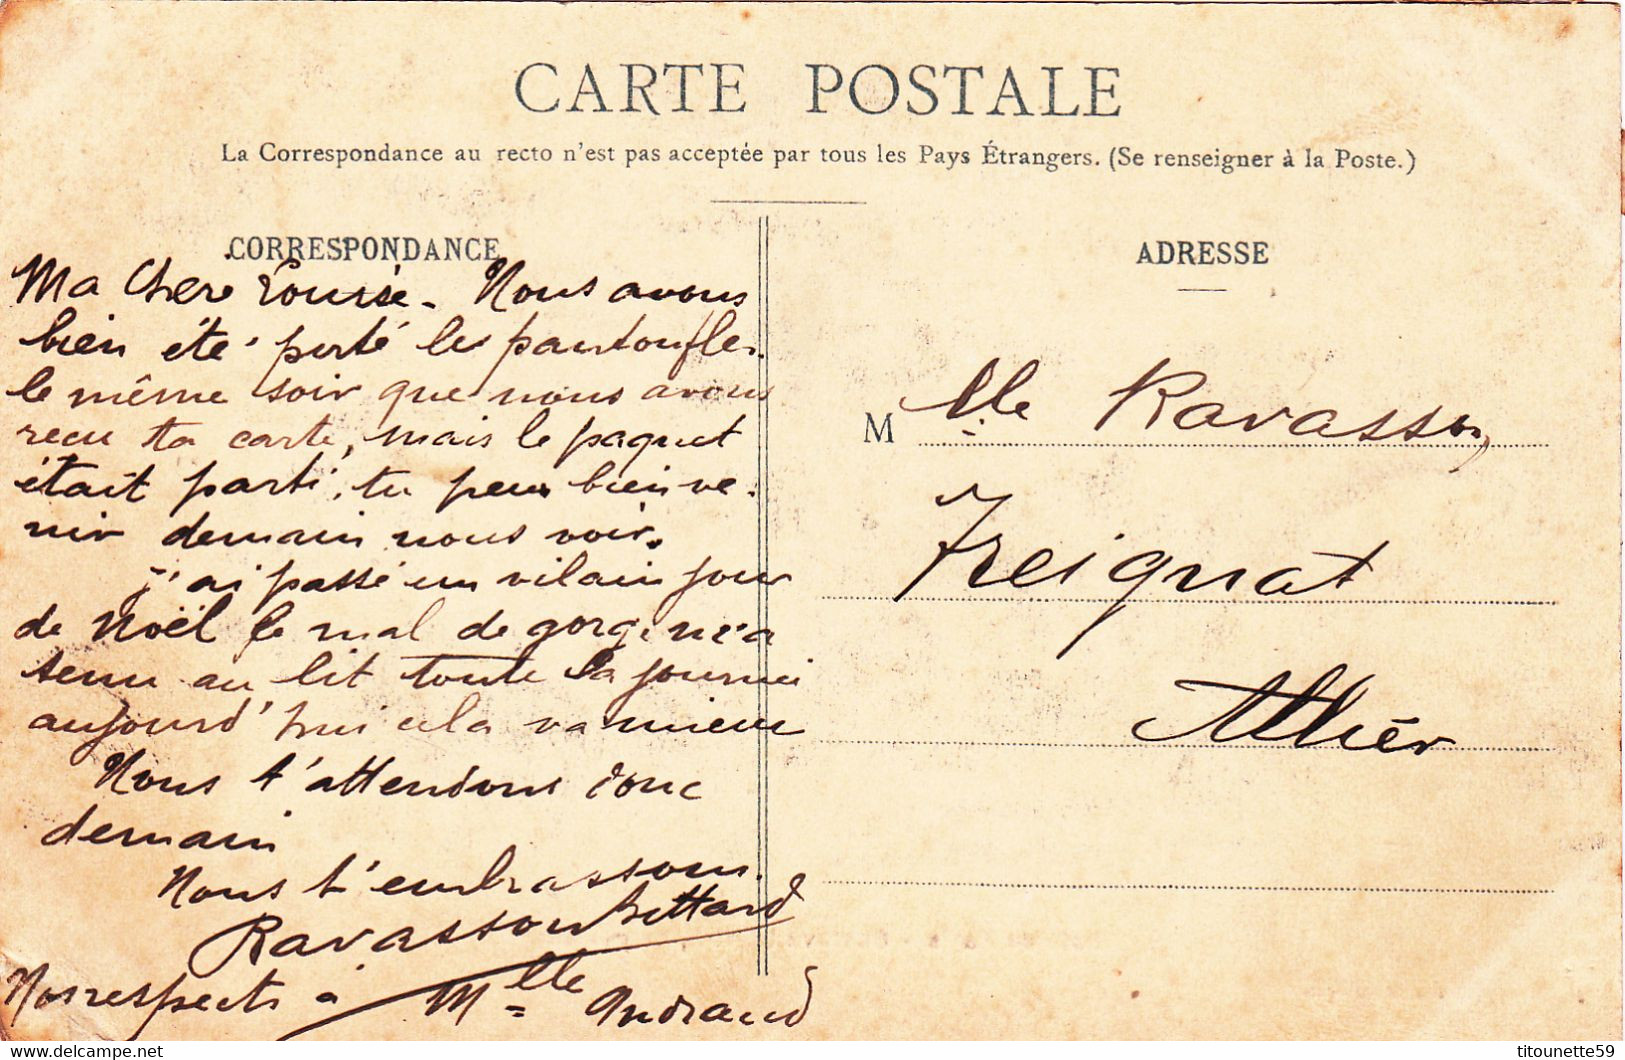 CARTE POSTALE
La Correspondance au recto n'est pas acceptée par tous les Pays Étrangers. (Se renseigner à la Poste.)
CORRESPONDANCE
Ma Chere Louise. Nous avons
bien été porté les pantoufles
le même soir que nous avons
recu ta carte, mais le paquet
était parti, tu peux bien ve-
nir demain nous voir.
j'ai passé un vilain jour
de Noël le mal de gorge m'a
tenu au lit toute la journée
aujourd'hui cela va mieux
Nous t'attendons donc
demain
Nous t'embrassons.
Ravasson
Nos respects à Mlle Andraud
ADRESSE
M lle Ravasson
Treignat
Allier
titounette59